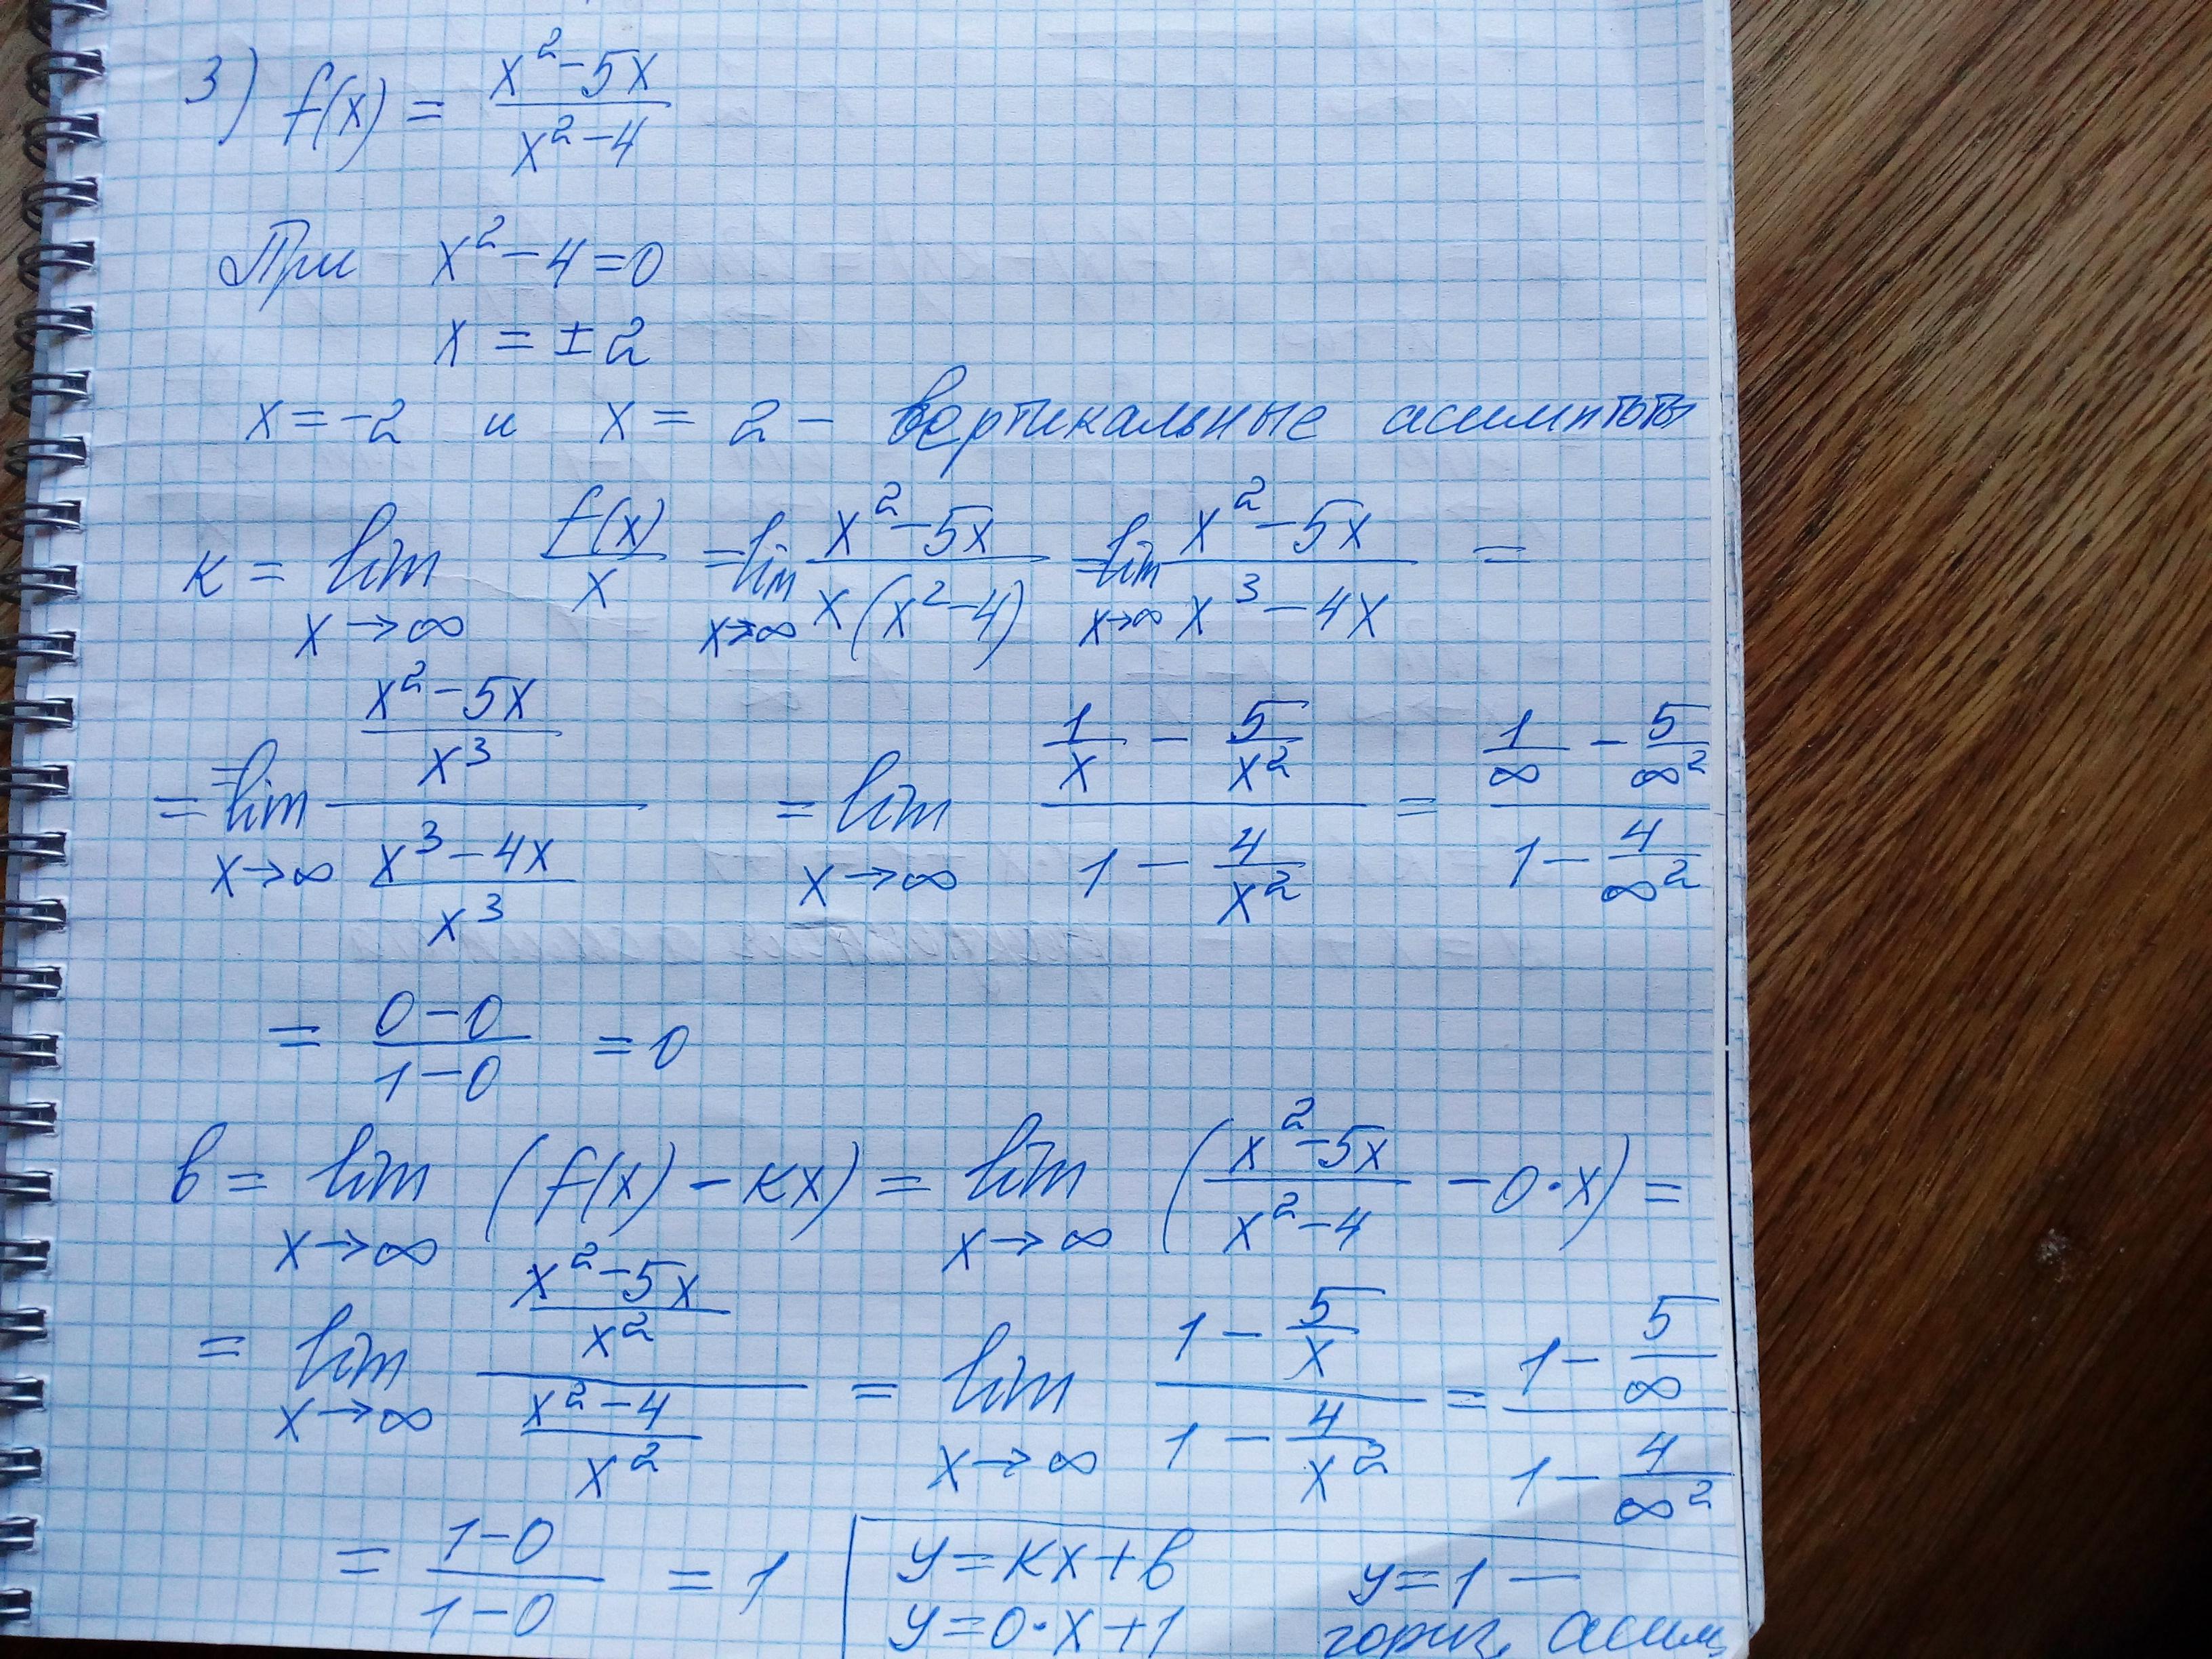 3) f(x) = (x² - 5x)/(x² - 4)
При x² - 4 = 0
x = ± 2
x = -2 и x = 2 - вертикальные асимптоты
к = lim x→∞ f(x)/x = lim x→∞ (x² - 5x)/(x(x² - 4)) = lim x→∞ (x² - 5x)/(x³ - 4x) =
= lim x→∞ ((x² - 5x)/x³)/((x³ - 4x)/x³) = lim x→∞ (1/x - 5/x²)/(1 - 4/x²) = (1/∞ - 5/∞²)/(1 - 4/∞²)
= (0 - 0)/(1 - 0) = 0
в = lim x→∞ (f(x) - кx) = lim x→∞ ((x² - 5x)/(x² - 4) - 0·x) =
= lim x→∞ ((x² - 5x)/x²)/((x² - 4)/x²) = lim x→∞ (1 - 5/x)/(1 - 4/x²) = (1 - 5/∞)/(1 - 4/∞²)
= (1 - 0)/(1 - 0) = 1
y = кx + в
y = 0·x + 1
y = 1 —
гориз. асим